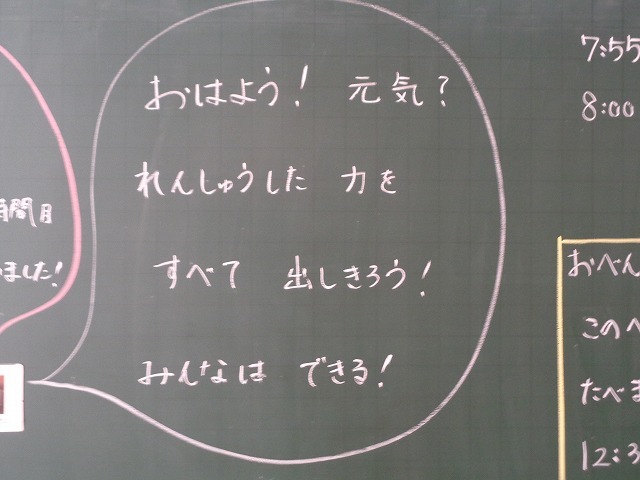 おはよう! 元気?
れんしゅうした 力を
すべて 出しきろう!
みんなは できる!
間目
ました!
7:55
8:00
おべん
この
たべま
12:3